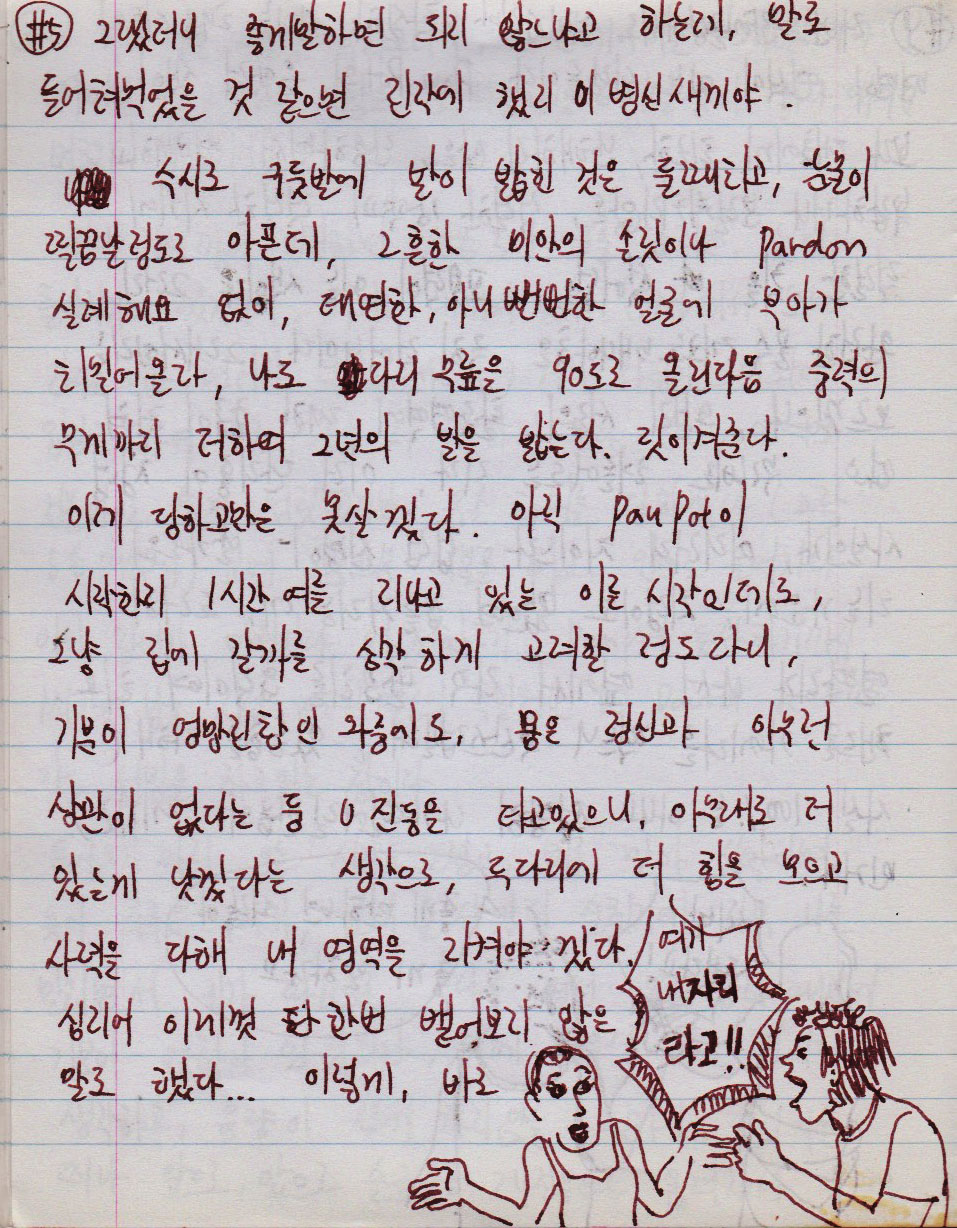 #5 그랬더니 좋게말하면 되지 않느냐고 하는데, 말로
들어쳐먹었을 것 같으면 진작에 했지 이 병신새끼야.
수시로 구둣발에 발이 밟힌 것은 둘째치고, 눈물이
찔끔날정도로 아픈데, 그흔한 미안의 손짓이나 pardon
실례해요 없이, 태연한, 아니 뻔뻔한 얼굴에 부아가
치밀어올라, 나도 다리 무릎을 90도로 올린다음 중력의
무게까지 더하여 그년의 발을 밟는다. 짓이겨준다.
이제 당하고만은 못살겠다. 아직 Paul Pot이
시작한지 1시간여를 지나고 있는 이른 시각인데도,
그냥 집에 갈까를 심각하게 고려할 정도라니,
기분이 엉망진창인 와중에도, 몸은 정신과 아무런
상관이 없다는 듯 U진동을 타고있으니, 이왕대로 더
있는게 낫겠다는 생각으로, 두다리에 더 힘을 모으고
사력을 다해 내 영역을 지켜야 겠다.
심지어 이제껏 단 한번 뱉어보지 않은
말도 했다... 이렇게, 바로
여기
내자리
라고!!